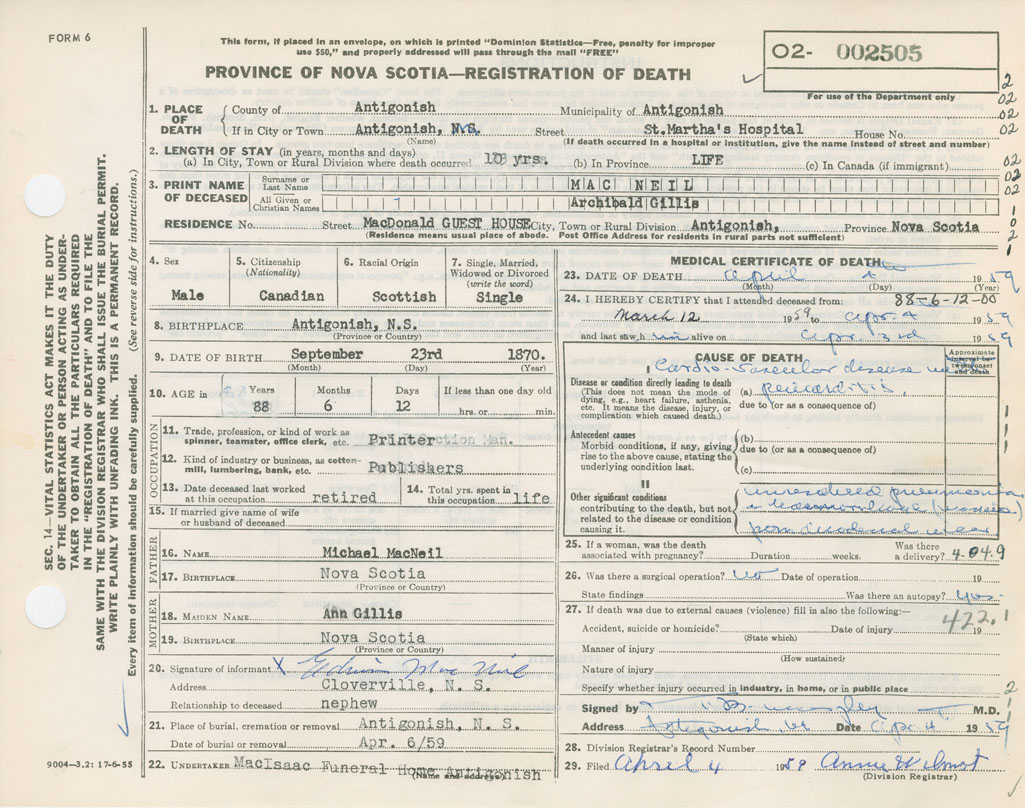 FORM 6
This form, if placed in an envelope, on which is printed "Dominion Statistics—Free, penalty for improper
use $50," and properly addressed will pass through the mail "FREE"
PROVINCE OF NOVA SCOTIA—REGISTRATION OF DEATH
O2- 002505
For use of the Department only
SEC. 14—VITAL STATISTICS ACT MAKES IT THE DUTY
OF THE UNDERTAKER OR PERSON ACTING AS UNDER-
TAKER TO OBTAIN ALL THE PARTICULARS REQUIRED
IN THE "REGISTRATION OF DEATH" AND TO FILE THE
SAME WITH THE DIVISION REGISTRAR WHO SHALL ISSUE THE BURIAL PERMIT.
WRITE PLAINLY WITH UNFADING INK. THIS IS A PERMANENT RECORD.
Every item of information should be carefully supplied. (See reverse side for instructions.)
1. PLACE OF DEATH
County of Antigonish Municipality of Antigonish
If in City or Town Antigonish, N.S. Street St.Martha's Hospital House No.
(Name) (If death occurred in a hospital or institution, give the name instead of street and number)
2. LENGTH OF STAY (in years, months and days)
(a) In City, Town or Rural Division where death occurred yrs. (b) In Province LIFE (c) In Canada (if immigrant)
3. PRINT NAME OF DECEASED
Surname or Last Name MAC NEIL
All Given or Christian Names Archibald Gillis
RESIDENCE No. Street MacDonald GUEST HOUSE City, Town or Rural Division Antigonish, Province Nova Scotia
(Residence means usual place of abode. Post Office Address for residents in rural parts not sufficient)
4. Sex
Male
5. Citizenship (Nationality)
Canadian
6. Racial Origin
Scottish
7. Single, Married, Widowed or Divorced (write the word)
Single
8. BIRTHPLACE Antigonish, N.S.
(Province or Country)
9. DATE OF BIRTH September 23rd 1870.
(Month) (Day) (Year)
10. AGE in Years Months Days If less than one day old
88 6 12 hrs. or min.
OCCUPATION
11. Trade, profession, or kind of work as
spinner, teamster, office clerk, etc. Printer
12. Kind of industry or business, as cotton-
mill, lumbering, bank, etc. Publishers
13. Date deceased last worked at this occupation retired
14. Total yrs. spent in this occupation life
15. If married give name of wife
or husband of deceased
FATHER
16. NAME Michael MacNeil
17. BIRTHPLACE Nova Scotia
(Province or Country)
MOTHER
18. MAIDEN NAME Ann Gillis
19. BIRTHPLACE Nova Scotia
(Province or Country)
20. Signature of informant X Mac Neil
Address Cloverville, N. S.
Relationship to deceased nephew
21. Place of burial, cremation or removal Antigonish, N. S.
Date of burial or removal Apr. 6/59
22. UNDERTAKER MacIsaac Funeral Home Antigonish
(Name and address)
9004—3.2: 17-6-55
MEDICAL CERTIFICATE OF DEATH
23. DATE OF DEATH April 4 1959
(Month) (Day) (Year)
24. I HEREBY CERTIFY that I attended deceased from: 88-6-12-00
March 12 1959 to Apr. 4 1959
and last saw h im alive on Apr. 3rd 1959
CAUSE OF DEATH
Approximate interval between onset and death
I
Cardio-Vascular disease
Disease or condition directly leading to death
(This does not mean the mode of dying, e.g., heart failure, asthenia, etc. It means the disease, injury, or complication which caused death.)
(a) pericarditis.
due to (or as a consequence of)
Antecedent causes
Morbid conditions, if any, giving rise to the above cause, stating the underlying condition last.
(b)
due to (or as a consequence of)
(c)
II
Other significant conditions
contributing to the death, but not related to the disease or condition causing it.
unresolved pneumonia
25. If a woman, was the death associated with pregnancy? Duration weeks. Was there a delivery? 4.049
26. Was there a surgical operation? no Date of operation 19
State findings Was there an autopsy? yes.
27. If death was due to external causes (violence) fill in also the following:—
422.1
Accident, suicide or homicide? Date of injury 19
(State which)
Manner of injury
(How sustained)
Nature of injury
Specify whether injury occurred in industry, in home, or in public place
Signed by M.D.
Address Antigonish Date Apr 4 1959
28. Division Registrar's Record Number
29. Filed April 4 1959 Annie Wilmot
(Division Registrar)
2
02
02
02
02
02
02
1
0
2
1
1
1
1
2
1